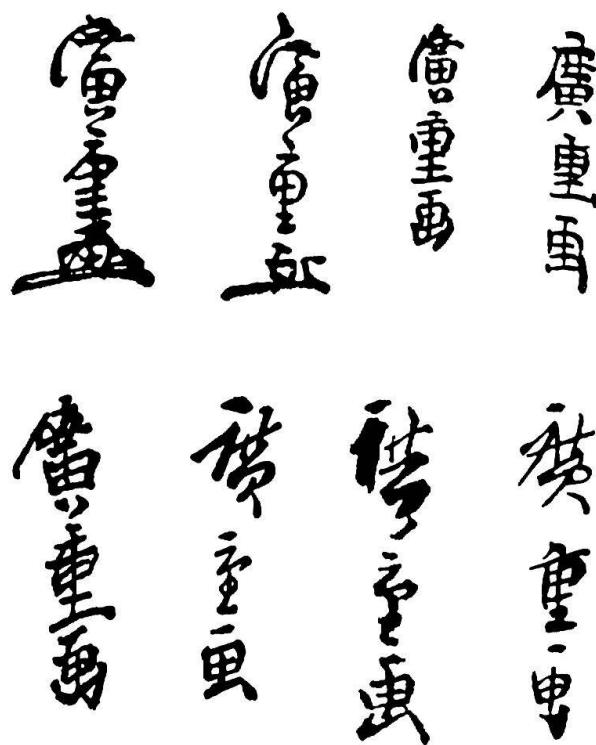 廣重画
廣重画
廣重画
廣重画
廣重画
廣重画
廣重画
廣重画